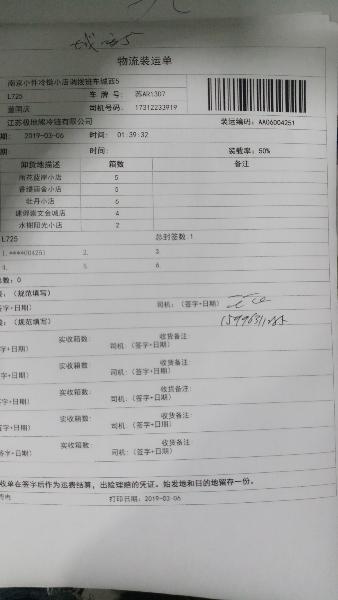 城西5
物流装运单
南京小件冷链小店调拨链车城西5
L725 车牌号: 苏AR1307
董国庆 司机号码: 17312233919
江苏极地熊冷链有限公司 装运编码: AA06004251
期: 2019-03-06 时间: 01:39:32
期: 时间: 装载率: 50%
卸货地描述 箱数 备注
雨花蓝岸小店 5
香缇丽舍小店 5
牡丹小店 6
建邺崇文金城店 4
水榭阳光小店 2
L725 总封签数:1
1.****004251 2. 3.
4. 5. 6.
总数: 0
签: (规范填写)
字+日期) 司机: (签字+日期)
签: (规范填写)
实收箱数: 收货备注:
字+日期) 司机: (签字+日期)
实收箱数: 收货备注:
字+日期) 司机: (签字+日期)
实收箱数: 收货备注:
字+日期) 司机: (签字+日期)
实收箱数: 收货备注:
字+日期) 司机: (签字+日期)
实收箱数: 收货备注:
字+日期) 司机: (签字+日期)
收单在签字后作为运费结算,出险理赔的凭证。始发地和目的地留存一份。
打印日期: 2019-03-06